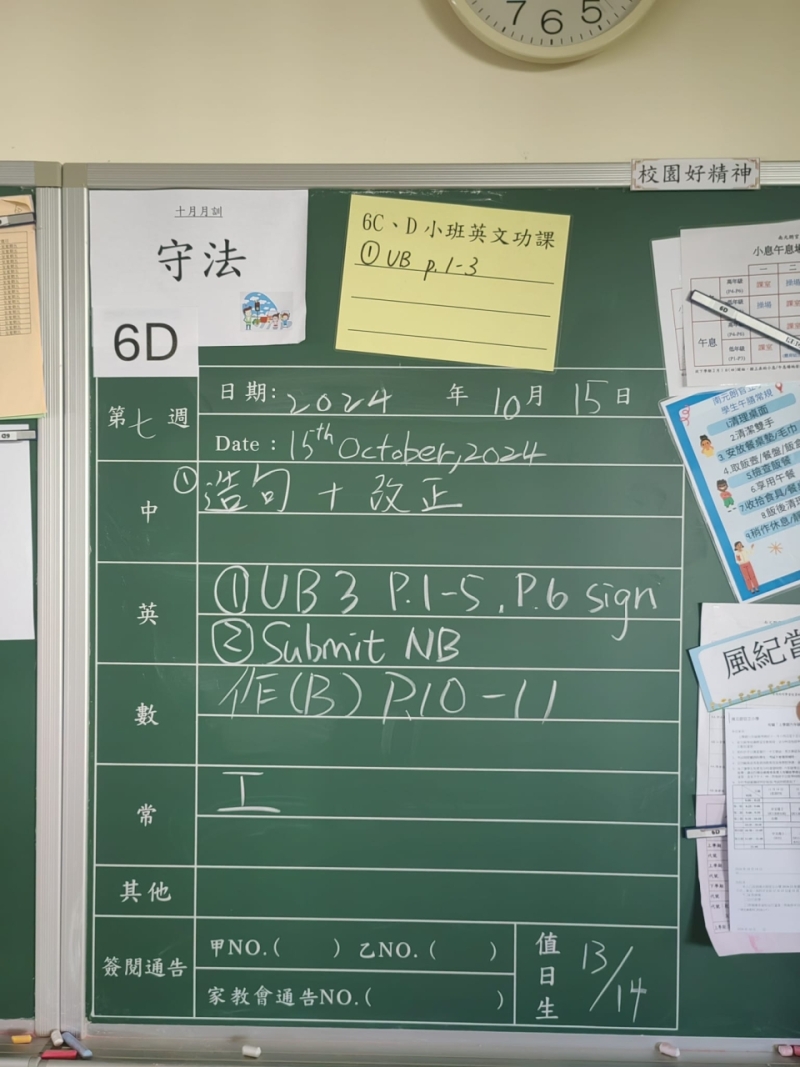 7 6 5
校園好精神
十月月訓
守法
6D
6C、D小班英文功課
① UB p.1-3
第七週
日期: 2024 年 10月 15日
Date : 15th October, 2024
中
① 造句 + 改正
英
① UB3 P.1-5, P.6 sign
② Submit NB
數
作(B) P.10-11
常
工
其他
簽閱通告
甲NO.( ) 乙NO.( )
家教會通告NO.( )
值日生
13/14
小息午息場
午息
學生午膳常規
1.清理桌面
2.清潔雙手
3.安放餐桌墊/毛巾
4.取飯壺/餐盤/飯盒
5.檢查飯餐
6.享用午餐
7.收拾食具/餐
8.飯後清理
9.稍作休息/
風紀當
6D